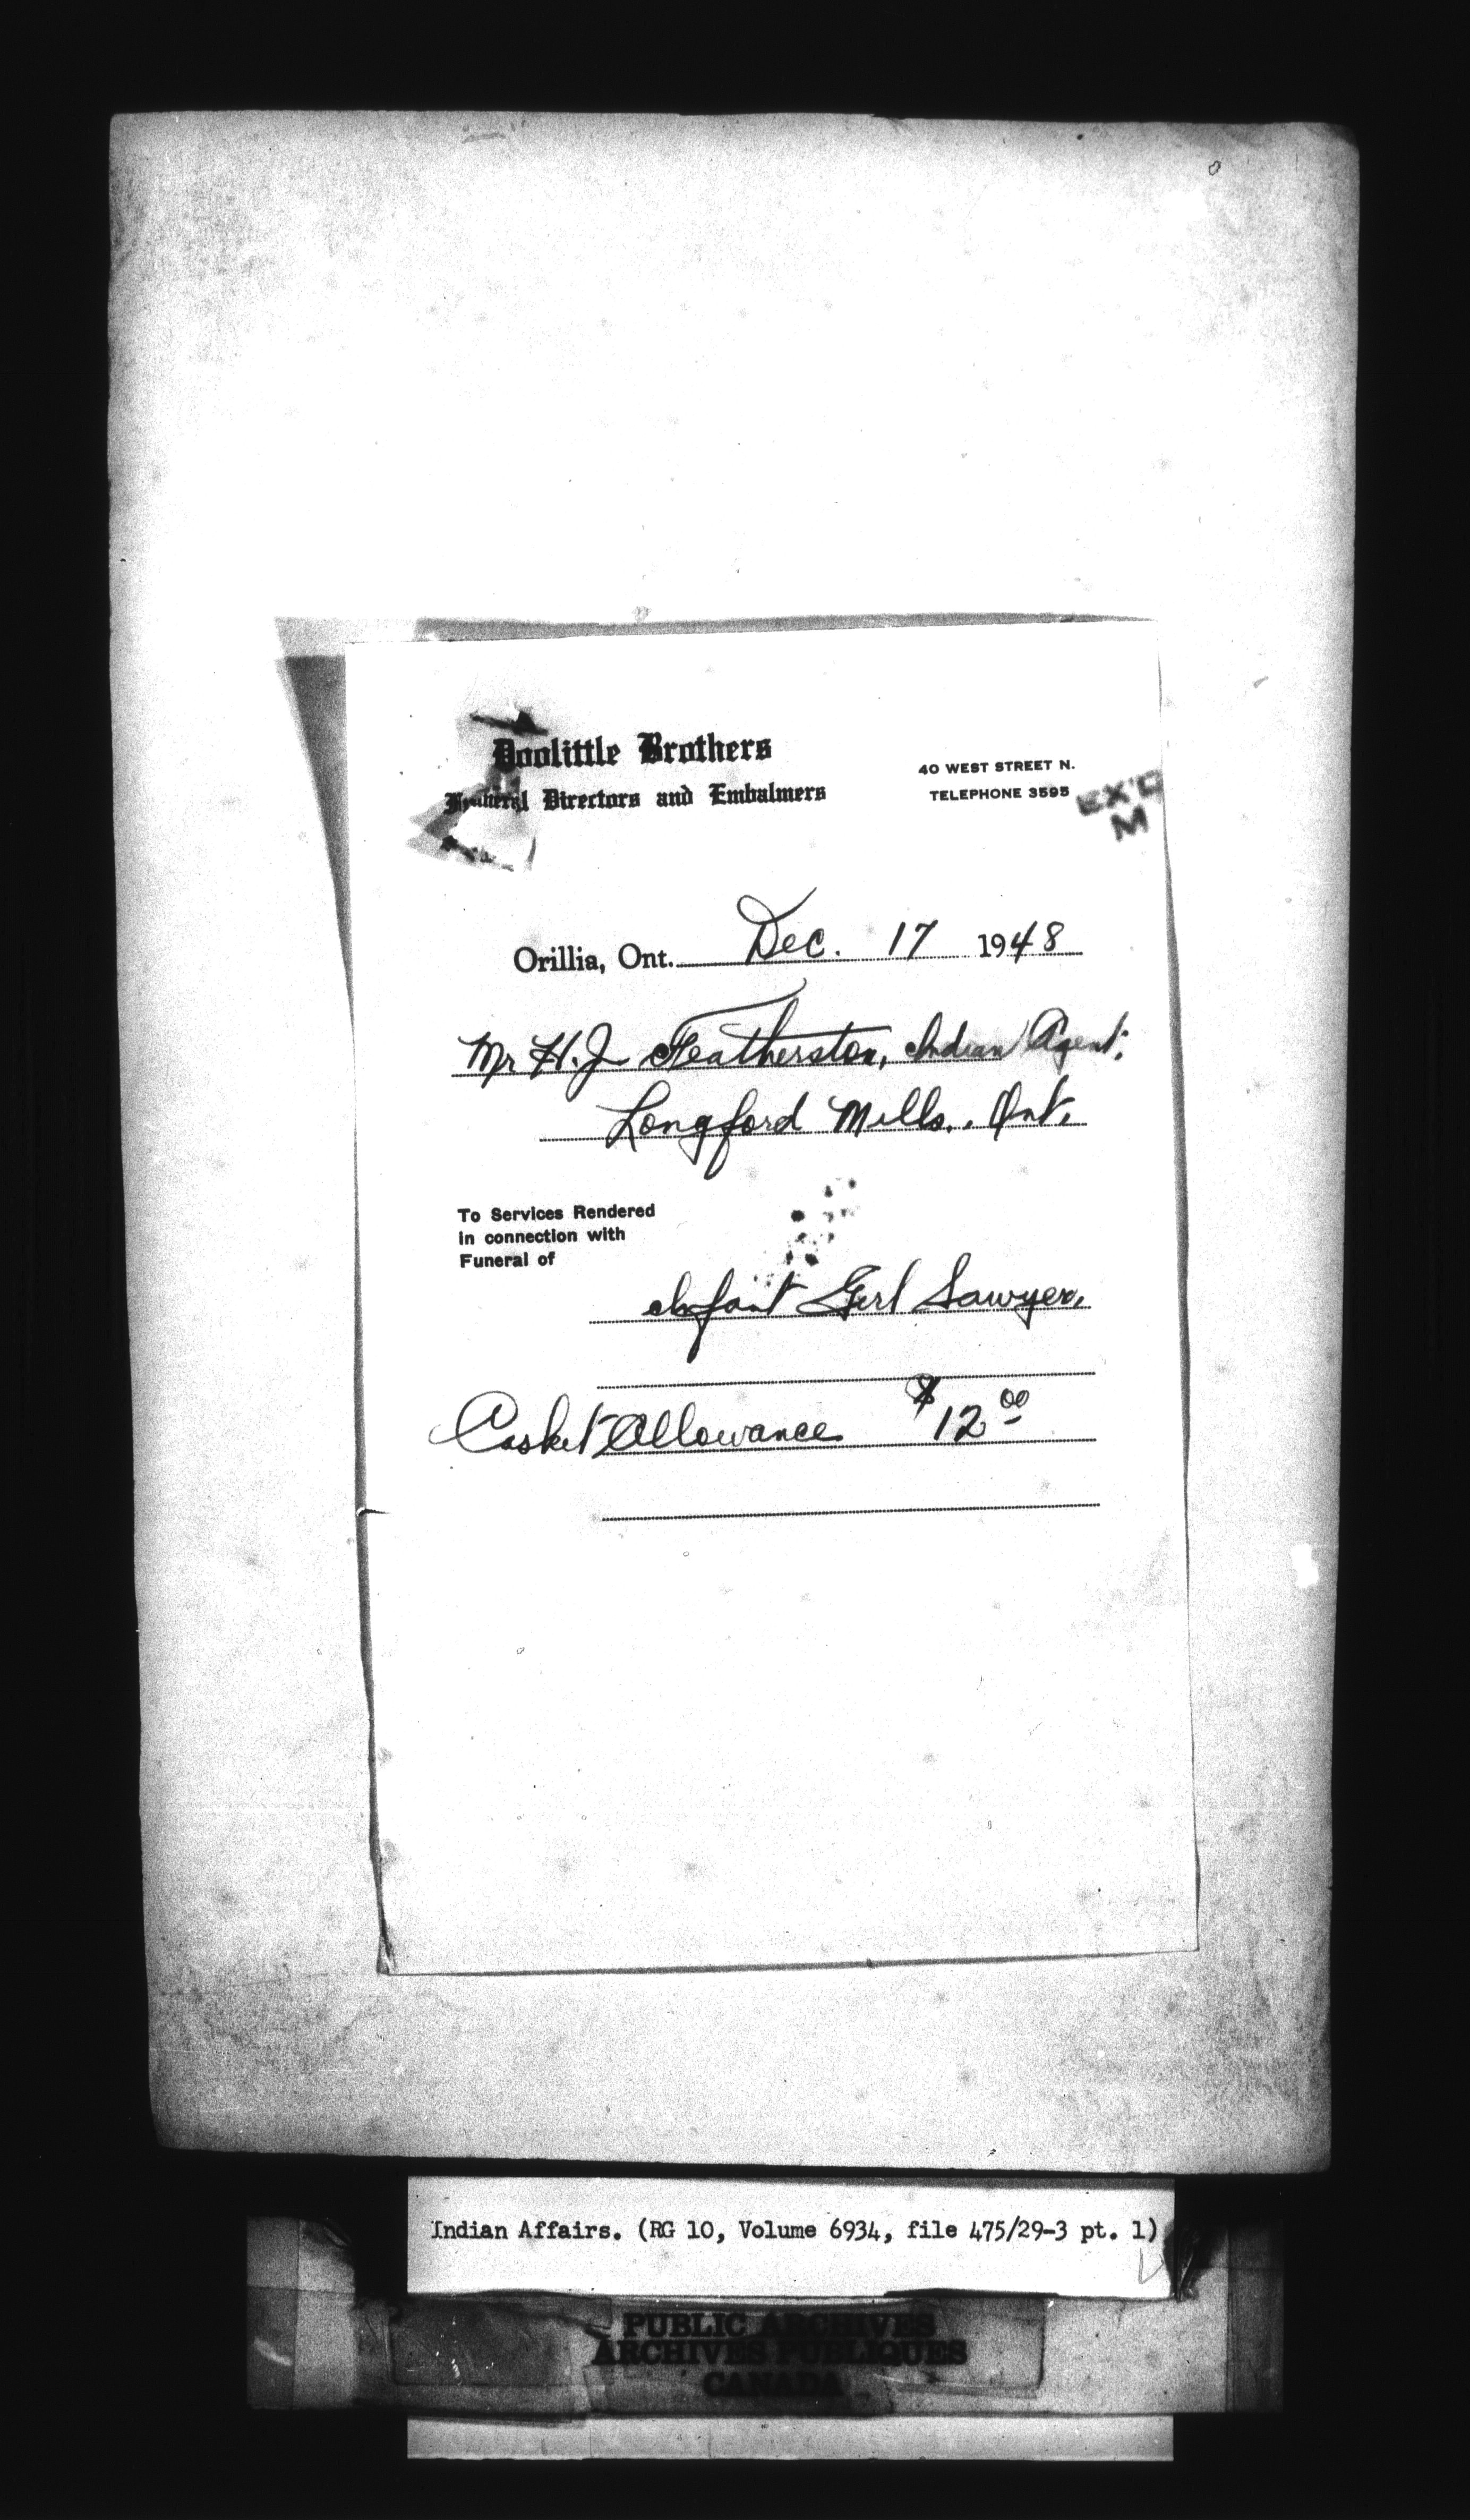 Doolittle Brothers
Funeral Directors and Embalmers
40 WEST STREET N.
TELEPHONE 3595
EX'D
M
Orillia, Ont. Dec. 17 1948
Mr H. J. Featherston, Indian Agent,
Longford Mills, Ont.
To Services Rendered
in connection with
Funeral of
Infant Girl Sawyer,
Casket Allowance $12.00
Indian Affairs. (RG 10, Volume 6934, file 475/29-3 pt. 1)
PUBLIC ARCHIVES
ARCHIVES PUBLIQUES
CANADA